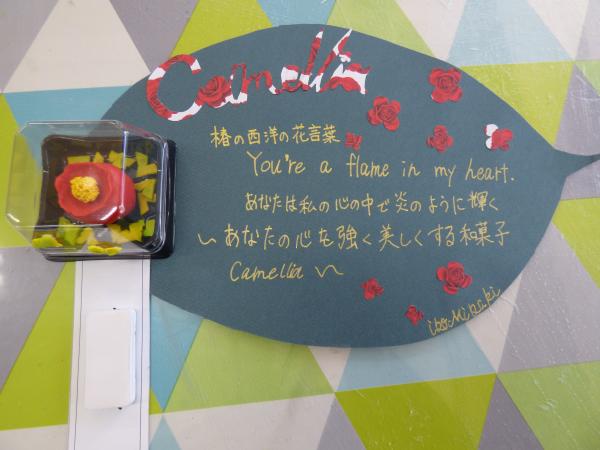 Camellia
椿の西洋の花言葉
You're a flame in my heart.
あなたは私の心の中で炎のように輝く
～あなたの心を強く美しくする和菓子
Camellia～